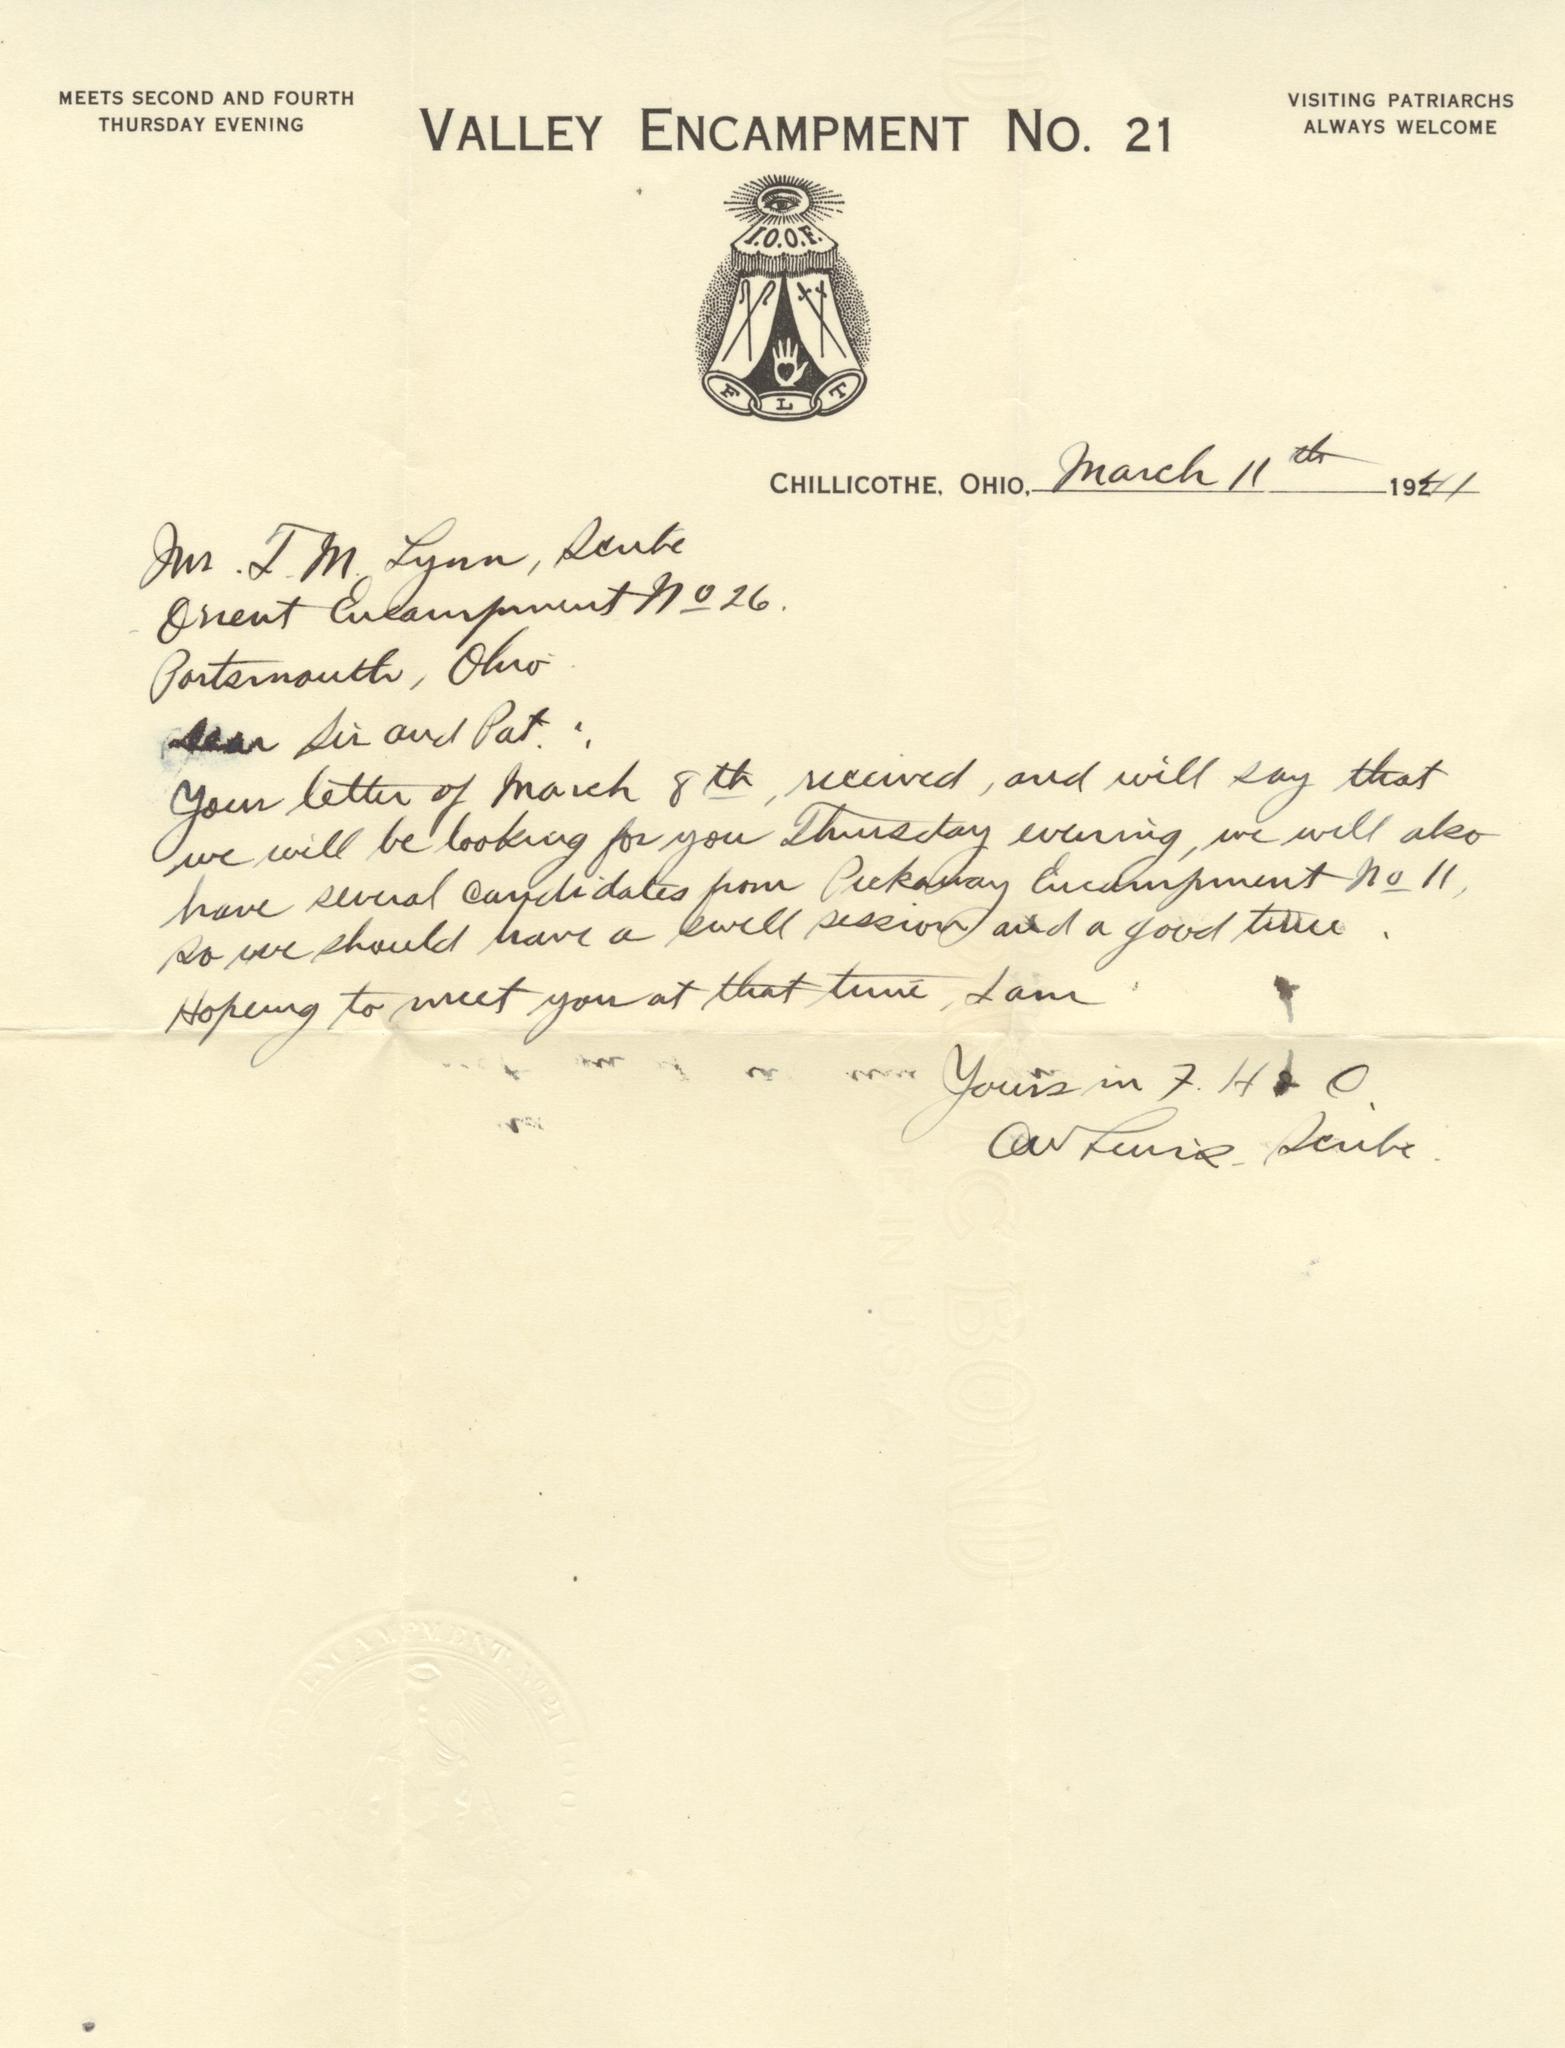 MEETS SECOND AND FOURTH
THURSDAY EVENING
VALLEY ENCAMPMENT NO. 21
VISITING PATRIARCHS
ALWAYS WELCOME
I.O.O.F.
F L T
CHILLICOTHE, OHIO, March 11th 1941
Mr. T. M. Lynn, Scribe
Orient Encampment No 26.
Portsmouth, Ohio
Dear Sir and Pat. :
Your letter of March 8th, received, and will say that
we will be looking for you Thursday evening, we will also
have several candidates from Pickaway Encampment No 11,
so we should have a swell session and a good time.
Hopeing to meet you at that time, I am
Yours in F. H & C.
CW Lewis - Scribe.
BOND
IN U.S.A.
ENCAMPMENT No 21 I.O.O.